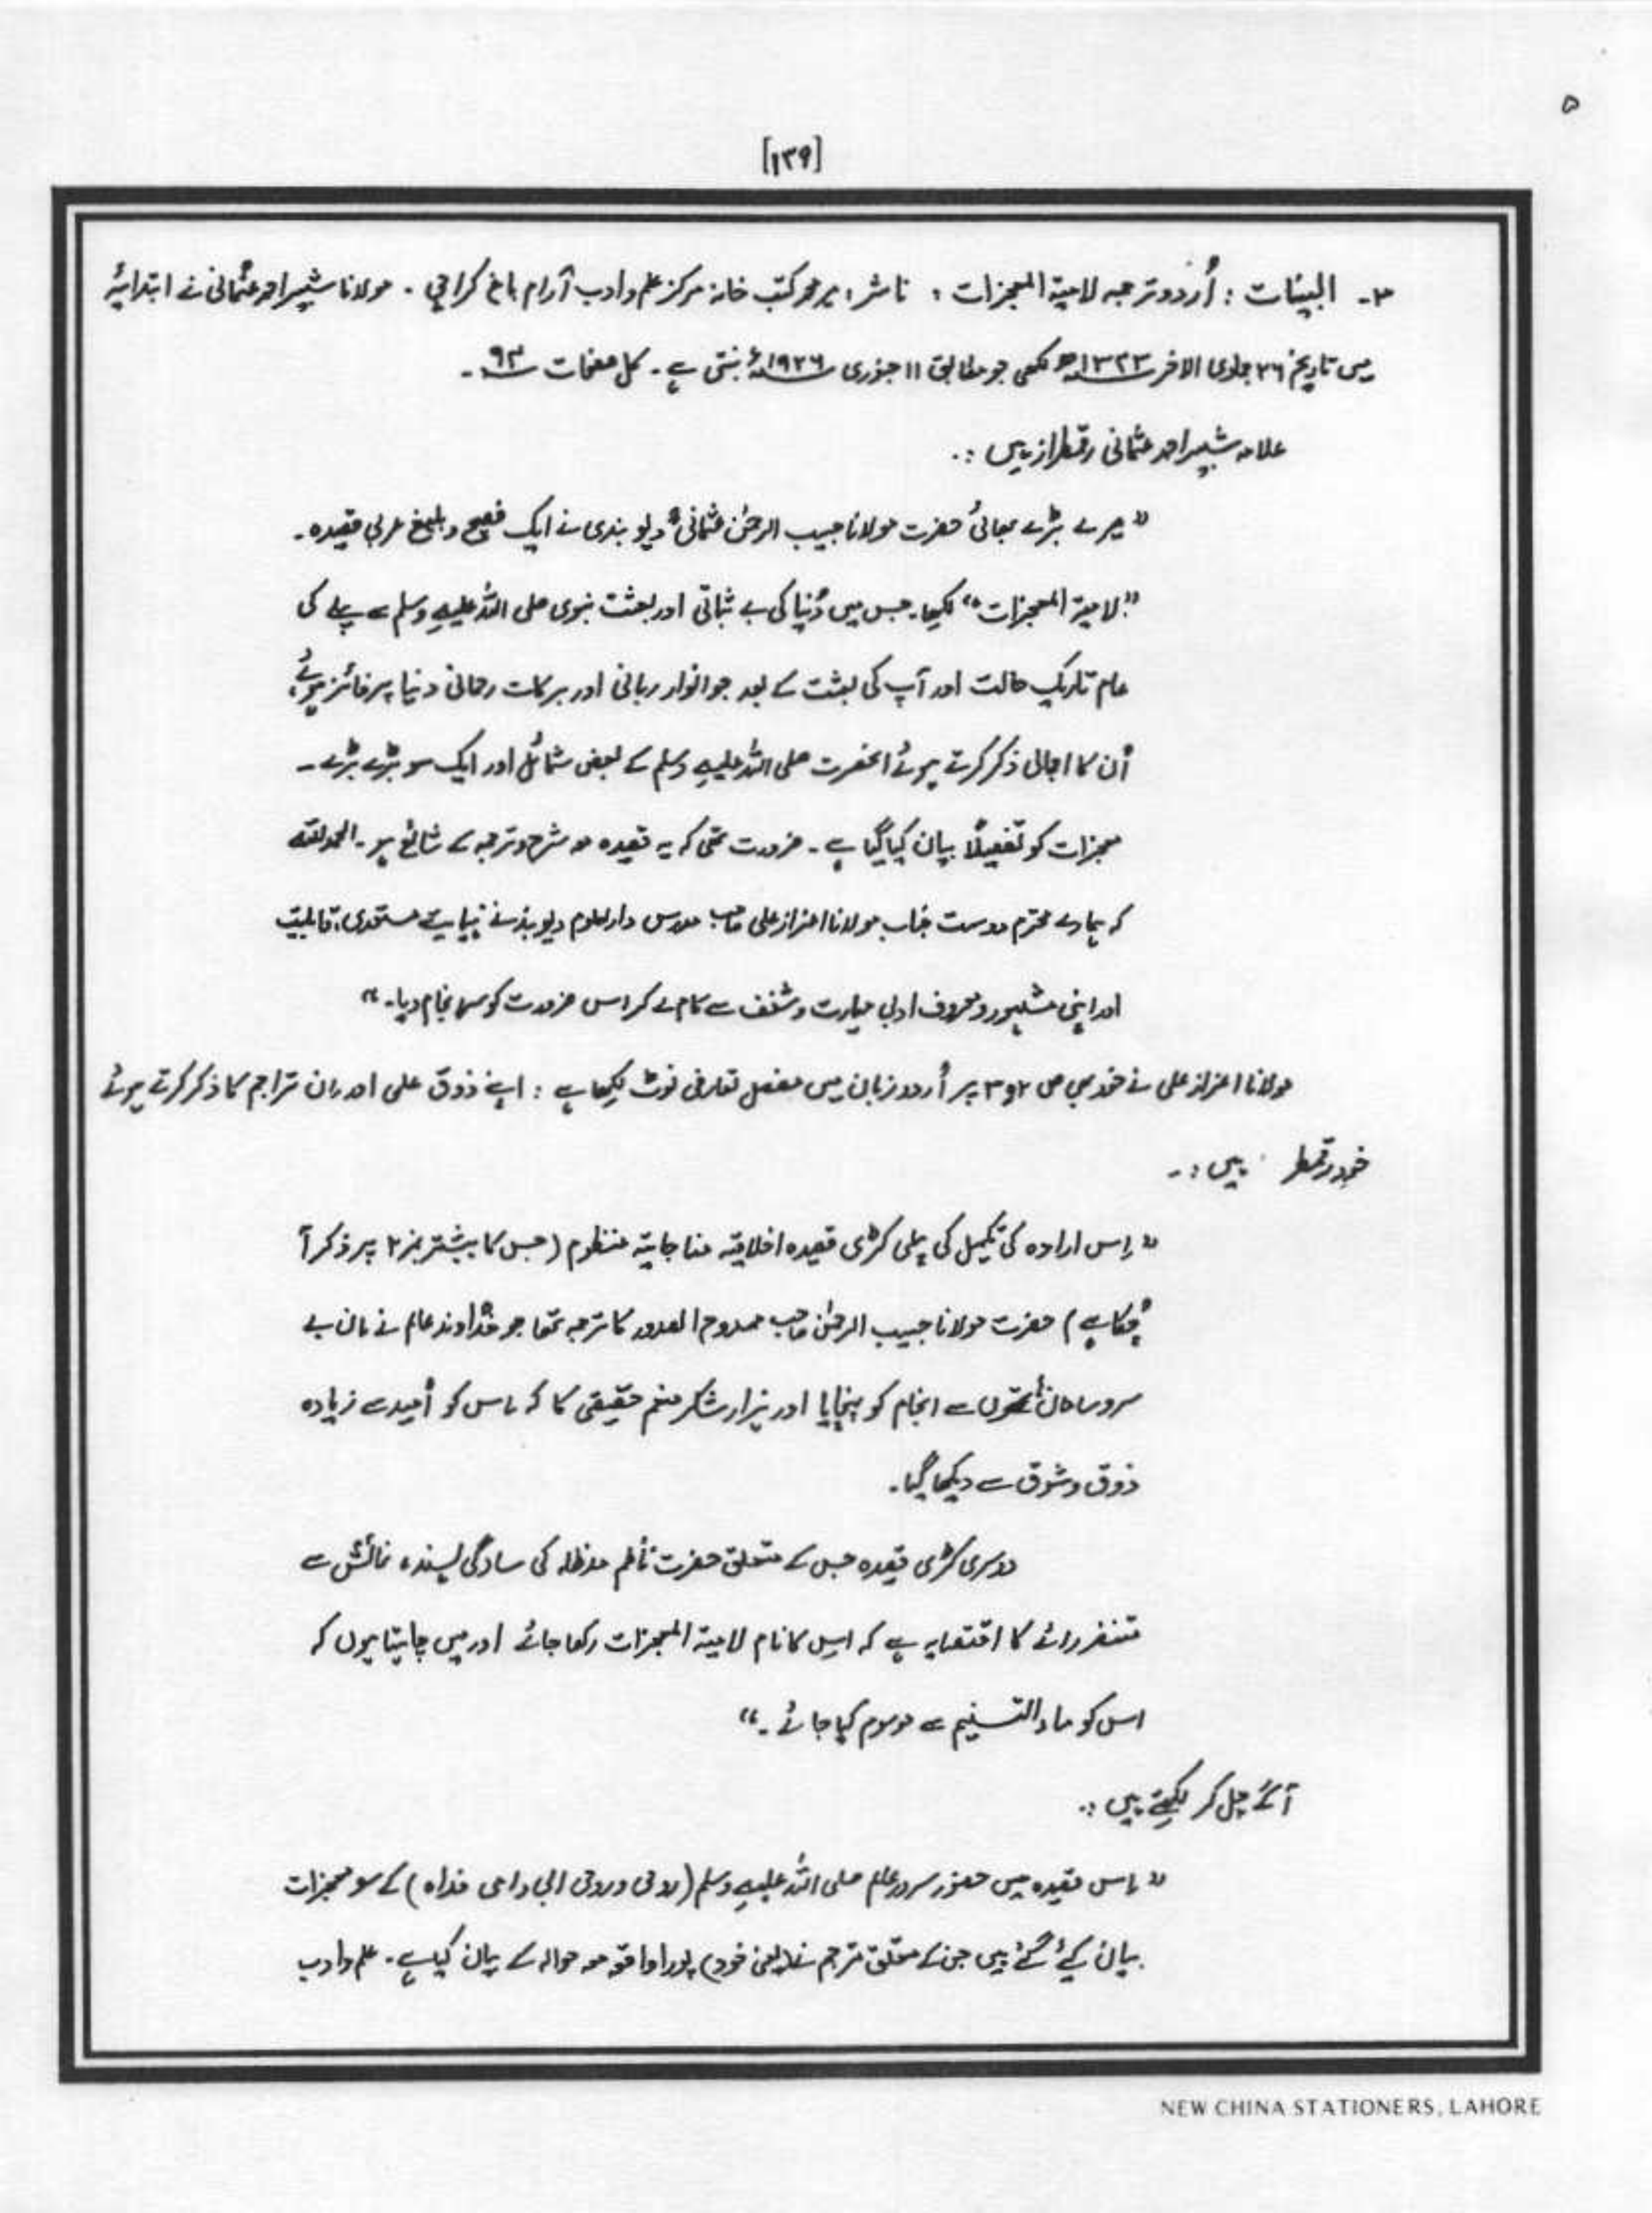 ۵
[۱۳۹]
۳۔ البینات : اُردو ترجمہ لامیۃ المعجزات ، ناشر : میر محمد کتب خانہ مرکز علم و ادب آرام باغ کراچی ۔ مولانا شبیر احمد عثمانی نے ابتدائیہ
میں تاریخ ۲۶ جمادی الاخر ۱۳۴۴ھ لکھی جو مطابق ۱۱ جنوری ۱۹۲۶ء بنتی ہے ۔ کل صفحات ۹۳ ۔
علامہ شبیر احمد عثمانی رقمطراز ہیں :۔
" میرے بڑے بھائی حضرت مولانا حبیب الرحمٰن عثمانیؒ دیو بندی نے ایک فصیح و بلیغ عربی قصیدہ ۔
" لامیۃ المعجزات " لکھا ۔ جس میں دُنیا کی بے ثباتی اور بعثت نبوی صلی اللہ علیہ وسلم سے پہلے کی
عام تاریک حالت اور آپ کی بعثت کے بعد جو انوار ربانی اور برکات رحمانی دنیا پر فائز ہوئے ،
اُن کا اجمالی ذکر کرتے ہوئے آنحضرت صلی اللہ علیہ وسلم کے بعض شمائل اور ایک سو بڑے بڑے ۔
معجزات کو تفصیلاً بیان کیا گیا ہے ۔ ضرورت تھی کہ یہ قصیدہ مع شرح و ترجمہ کے شائع ہو ۔ الحمدللہ
کہ ہمارے محترم دوست جناب مولانا اعزاز علی صاحب مدرس دارالعلوم دیوبند نے نہایت مستعدی ، قابلیت
اور اپنی مشہور و معروف ادبی مہارت و شغف سے کام لے کر اس ضرورت کو سرانجام دیا ۔ "
مولانا اعزاز علی نے خود بھی ص ۲ و ۳ پر اُردو زبان میں مفصل تعارفی نوٹ لکھا ہے : اپنے ذوق علمی اور ان تراجم کا ذکر کرتے ہوئے
خود رقمطر ہیں :۔
" اِس ارادہ کی تکمیل کی پہلی کڑی قصیدہ اخلاقیہ مناجاتیہ منظوم ( جس کا پیشتر نمبر ۲ پر ذکر آ
چُکا ہے ) حضرت مولانا حبیب الرحمٰن صاحب ممدوح الصدور کا ترجمہ تھا جو خُداوند عالم نے ان بے
سروسامان ہاتھوں سے انجام کو پہنچایا اور ہزار شکر منعم حقیقی کا کہ اس کو اُمید سے زیادہ
ذوق و شوق سے دیکھا گیا ۔
دوسری کڑی قصیدہ جس کے متعلق حضرت ناظم مدظلہ کی سادگی پسند ، نمائش سے
متنفر رائے کا اقتضا یہ ہے کہ اس کا نام لامیۃ المعجزات رکھا جائے اور میں چاہتا ہوں کہ
اس کو ماء التسنیم سے موسوم کیا جائے ۔ "
آگے چل کر لکھتے ہیں :۔
" اس قصیدہ میں حضور سرور عالم صلی اللہ علیہ وسلم ( روحی و روح ابی و امی فداہ ) کے سو معجزات
بیان کیے گئے ہیں جن کے متعلق مترجم نے ( یعنی خود ) پورا واقعہ مع حوالہ کے بیان کیا ہے ۔ علم و ادب
NEW CHINA STATIONERS, LAHORE